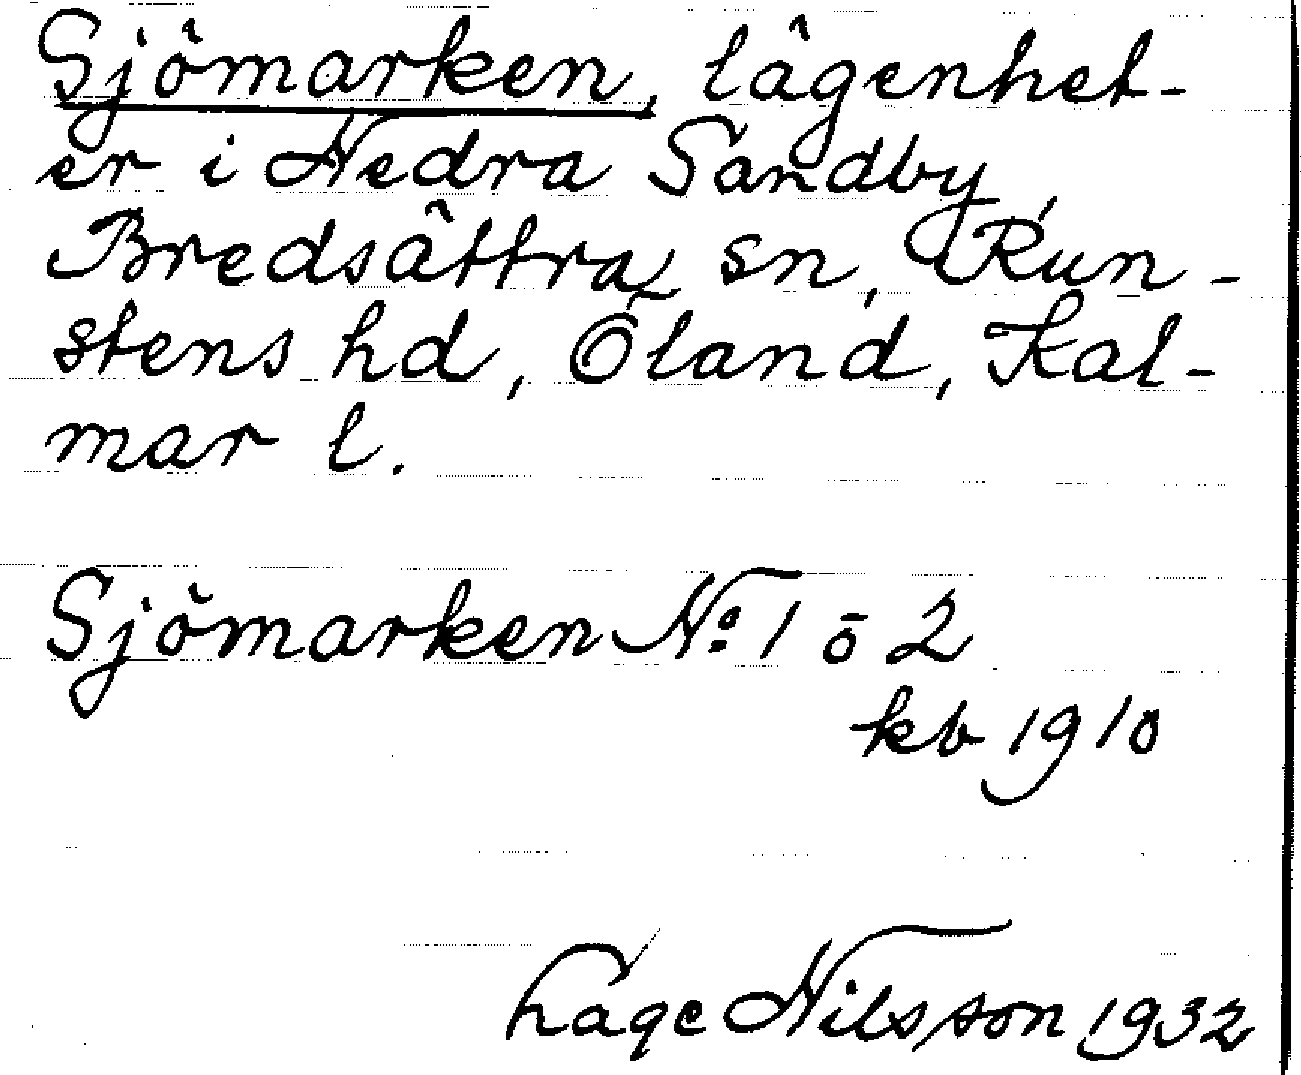 Sjömarken, lägenhet-
er i Nedra Sandby
Bredsättra sn, Run-
stens hd, Öland, Kal-
mar l.
Sjömarken No: 1 o 2
kb 1910
Lage Nilsson 1932